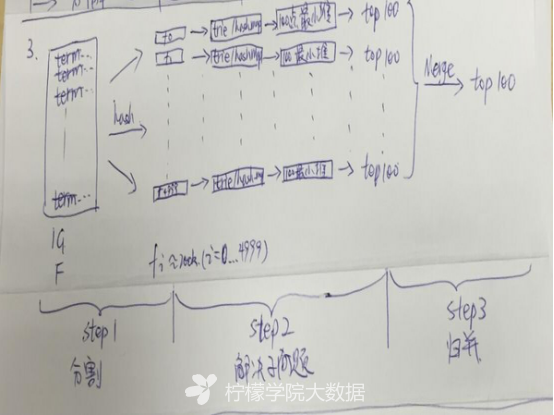 3.
term...
term...
term...
term...
hash
f0 → trie/hashmap → 100点最小堆 → top100
f1 → trie/hashmap → 100最小堆 → top100
f4999 → trie/hashmap → 100最小堆 → top100
Merge → top100
1G
F
fi≈200k.(i=0...4999)
step1
step2
step3
分割
解决子问题
归并
柠檬学院大数据